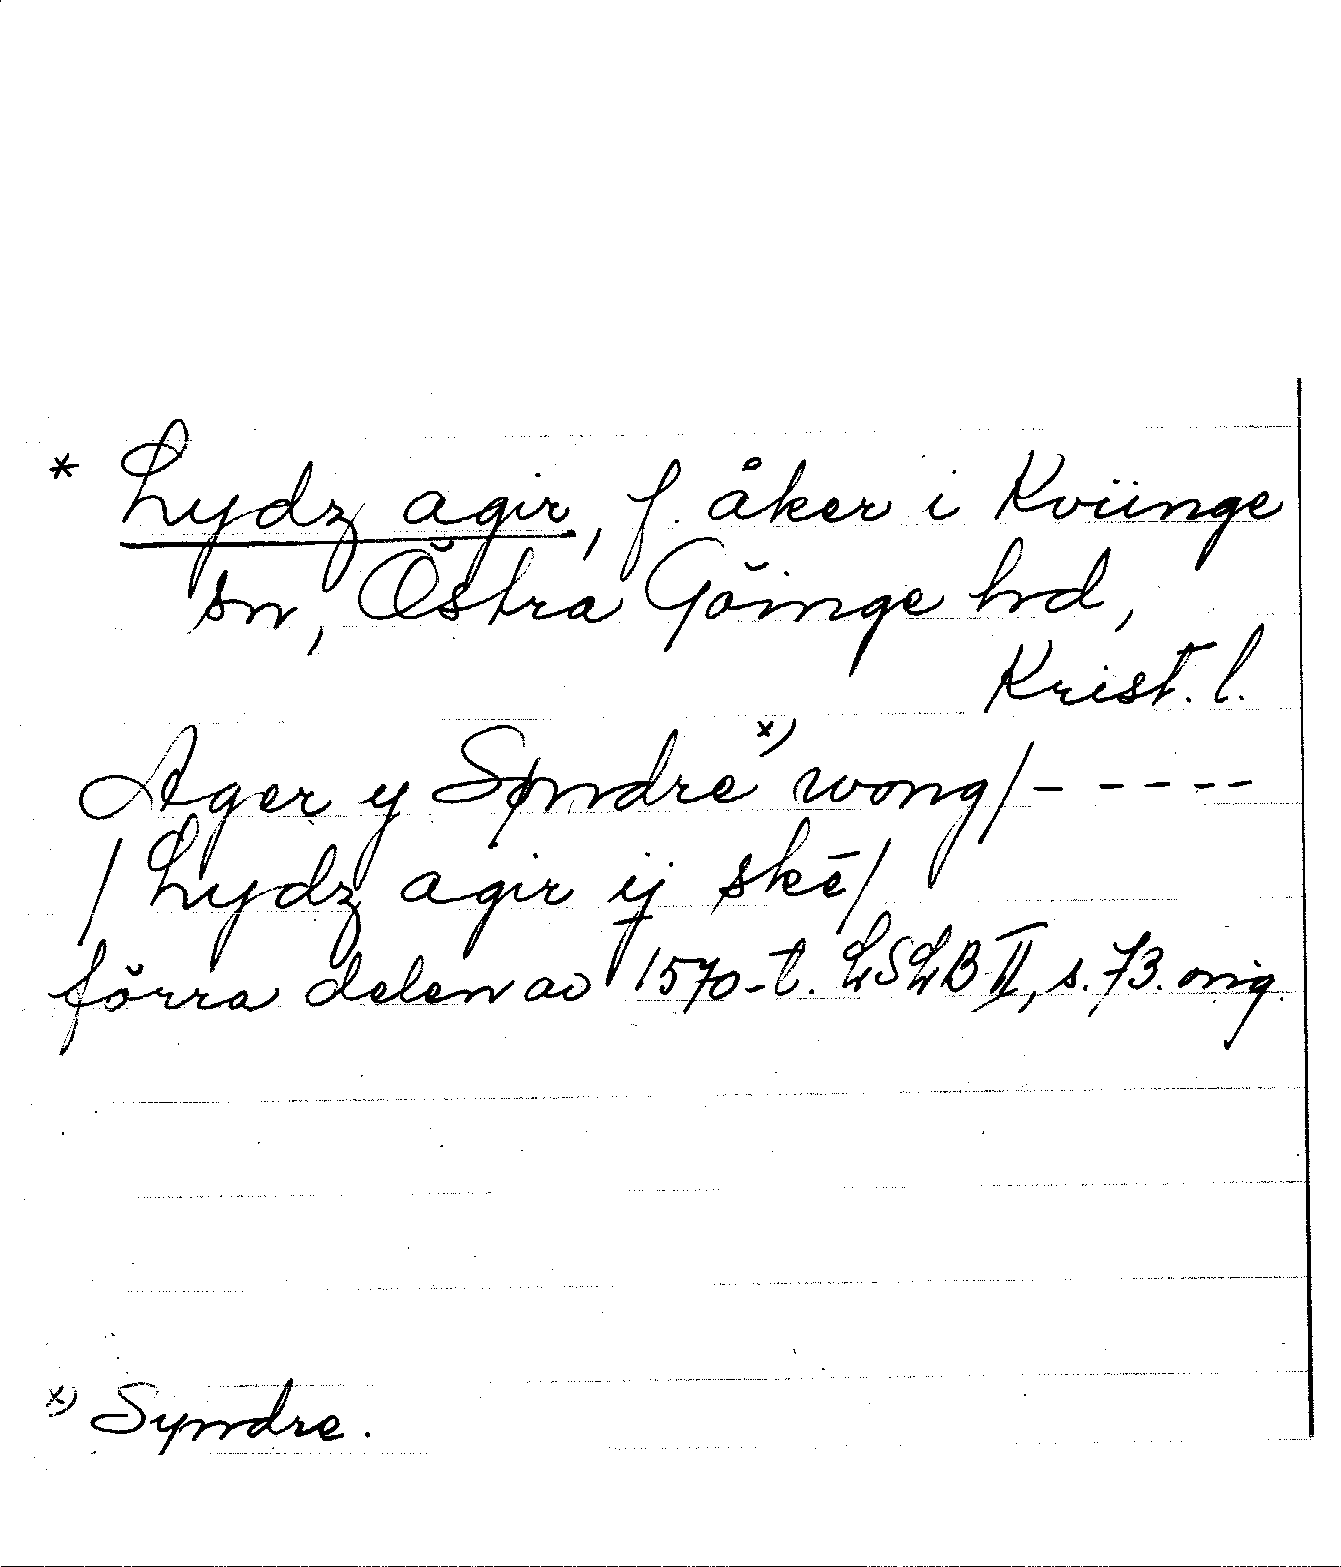 * Lydz agir, f. åker i Kviinge
sn, Östra Göinge hd,
Krist. l.
Ager y Søndre x) wong/-----
/Lydz agir ij skē/
förra delen av 1570-t. LSLB II, s. 73. orig.
x) Syndre.